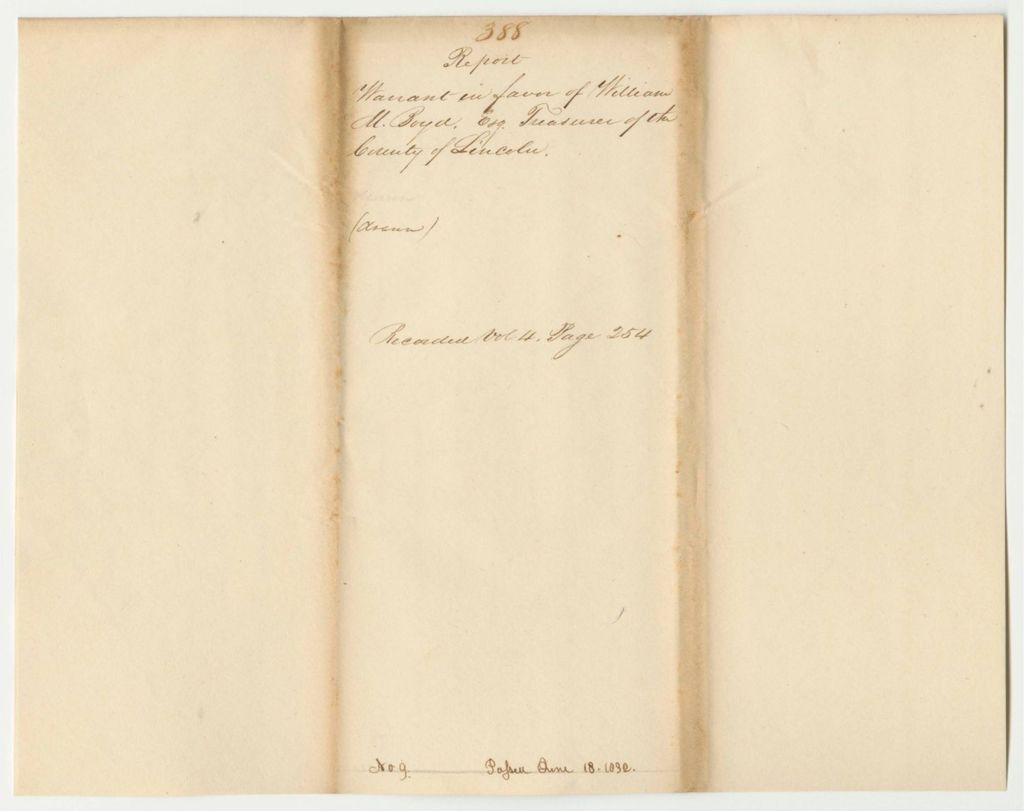 388
Report
Warrant in favor of William
M. Boyd, Esq. Treasurer of the
County of Lincoln.
(drawn)
Recorded Vol 4. Page 254
No 9. Passed June 18. 1830.